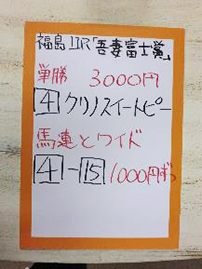 福島11R「吾妻富士賞」
単勝 3000円
4 クリノスイートピー
馬連とワイド
4-15 1000円ずつ